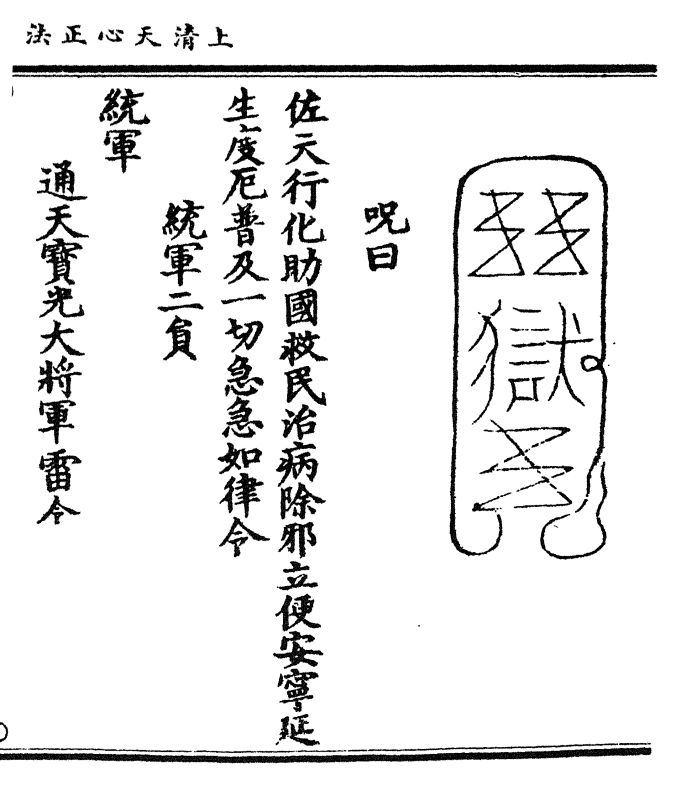 上清天心正法
獄
呪曰
佐天行化助國救民治病除邪立便安寧延
生度厄普及一切急急如律令
統軍二負
統軍
通天寶光大將軍雷令